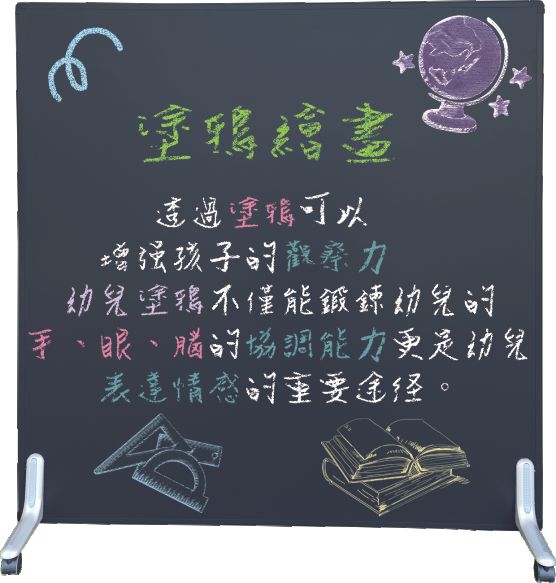 塗鴉繪畫
透過塗鴉可以
增強孩子的觀察力
幼兒塗鴉不僅能鍛鍊幼兒的
手、眼、腦的協調能力更是幼兒
表達情感的重要途径。